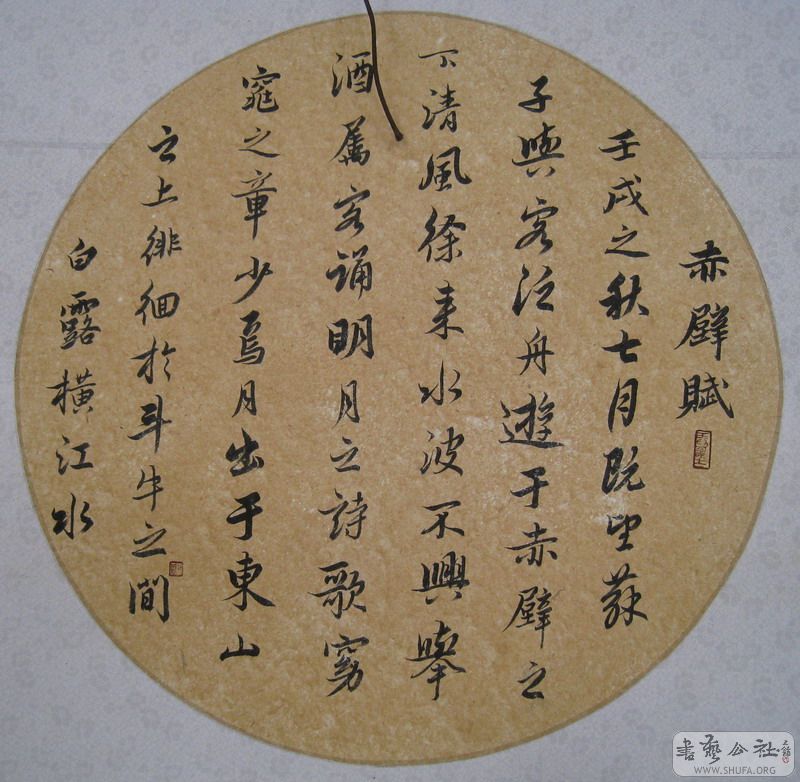 赤壁賦
壬戌之秋七月既望蘇
子與客泛舟遊于赤壁之
下清風徐来水波不興舉
酒属客誦明月之詩歌窈
窕之章少焉月出于東山
之上徘徊於斗牛之間
白露橫江水
書藝公社
WWW.SHUFA.ORG